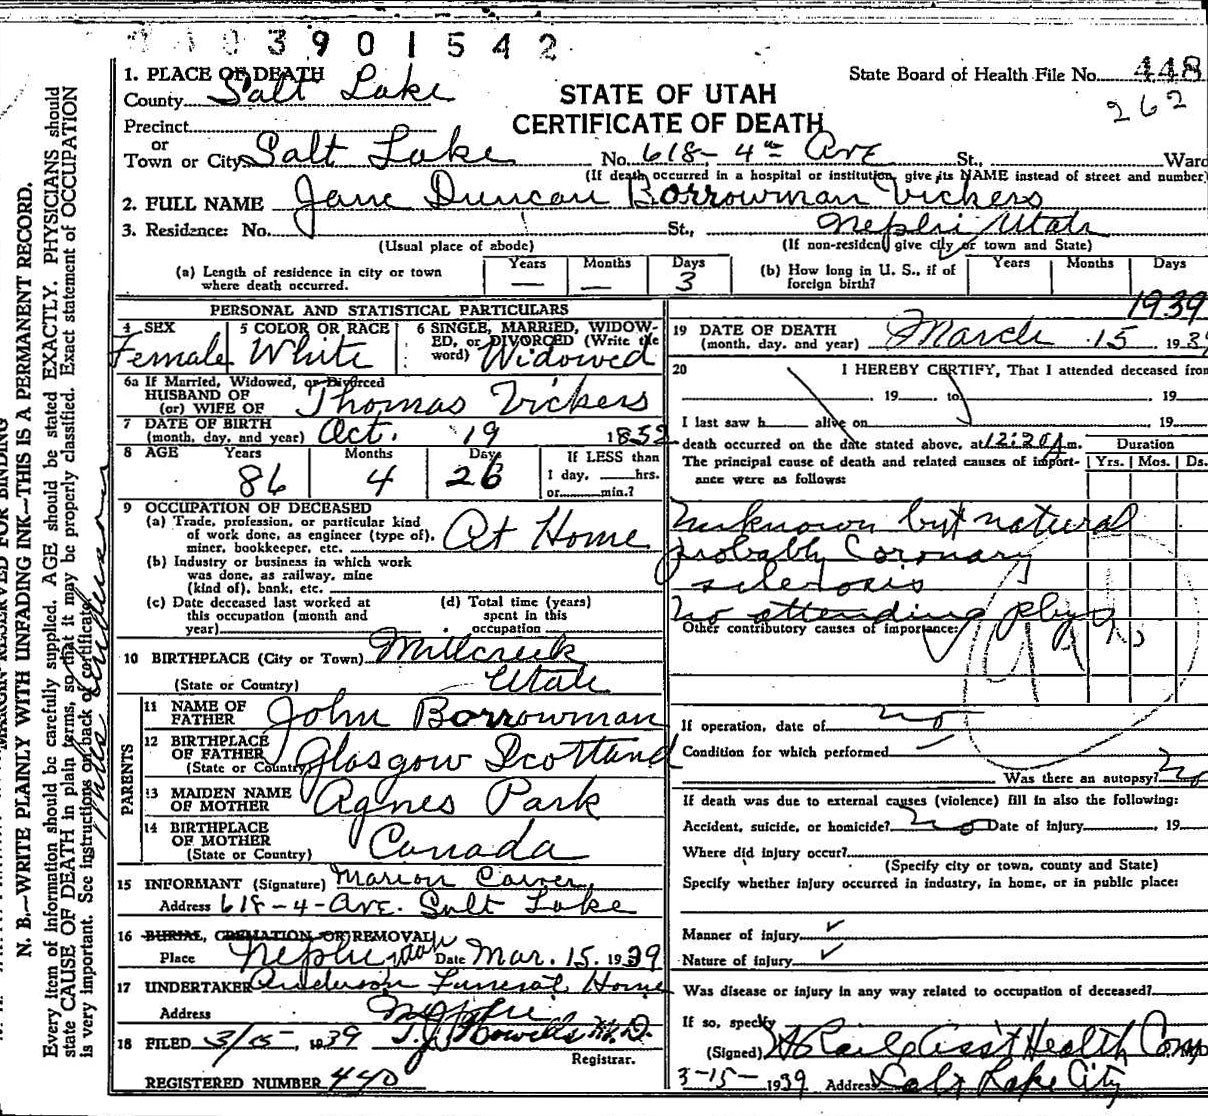 3901542
1. PLACE OF DEATH
County Salt Lake
State Board of Health File No. 448
262
STATE OF UTAH
CERTIFICATE OF DEATH
Precinct
or
Town or City Salt Lake No. 618 - 4th Ave St., Ward
(If death occurred in a hospital or institution, give its NAME instead of street and number)
2. FULL NAME Jane Duncan Borrowman Vickers
3. Residence: No. St., Nephi Utah
(Usual place of abode) (If non-resident give city or town and State)
(a) Length of residence in city or town where death occurred. Years — Months — Days 3
(b) How long in U. S., if of foreign birth? Years Months Days
PERSONAL AND STATISTICAL PARTICULARS
4 SEX Female
5 COLOR OR RACE White
6 SINGLE, MARRIED, WIDOWED, or DIVORCED (Write the word) Widowed
6a If Married, Widowed, or Divorced
HUSBAND OF
(or) WIFE OF Thomas Vickers
7 DATE OF BIRTH
(month, day, and year) Oct. 19 1852
8 AGE Years 86 Months 4 Days 26 If LESS than 1 day, hrs. or min.?
9 OCCUPATION OF DECEASED
(a) Trade, profession, or particular kind of work done, as engineer (type of), miner, bookkeeper, etc. At Home
(b) Industry or business in which work was done, as railway, mine (kind of), bank, etc.
(c) Date deceased last worked at this occupation (month and year)
(d) Total time (years) spent in this occupation
10 BIRTHPLACE (City or Town) Millcreek
(State or Country) Utah
PARENTS
11 NAME OF FATHER John Borrowman
12 BIRTHPLACE OF FATHER (State or Country) Glasgow Scotland
13 MAIDEN NAME OF MOTHER Agnes Park
14 BIRTHPLACE OF MOTHER (State or Country) Canada
15 INFORMANT (Signature) Marion Carver
Address 618 - 4 - Ave. Salt Lake
16 BURIAL, CREMATION OR REMOVAL
Place Nephi Utah Date Mar. 15, 1939
17 UNDERTAKER Anderson Funeral Home
Address Nephi
18 FILED 3/15, 1939 T.J. Howells M.D.
Registrar.
REGISTERED NUMBER 440
1939
19 DATE OF DEATH
(month, day, and year) March 15 1939
20 I HEREBY CERTIFY, That I attended deceased from
19 to 19
I last saw h alive on 19
death occurred on the date stated above, at 12:20 A m.
The principal cause of death and related causes of importance were as follows:
Duration
Yrs. Mos. Ds.
Unknown but natural
probably Coronary
sclerosis
no attending phys
Other contributory causes of importance:
If operation, date of no
Condition for which performed
Was there an autopsy? no
If death was due to external causes (violence) fill in also the following:
Accident, suicide, or homicide? no Date of injury , 19
Where did injury occur?
(Specify city or town, county and State)
Specify whether injury occurred in industry, in home, or in public place:
Manner of injury
Nature of injury
Was disease or injury in any way related to occupation of deceased?
If so, specify
(Signed) Asst Health Comr
3-15-1939 Address Salt Lake City
MARGIN RESERVED FOR BINDING
N. B.—WRITE PLAINLY WITH UNFADING INK—THIS IS A PERMANENT RECORD.
Every item of information should be carefully supplied. AGE should be stated EXACTLY. PHYSICIANS should
state CAUSE OF DEATH in plain terms, so that it may be properly classified. Exact statement of OCCUPATION
is very important. See instructions on back of certificate.